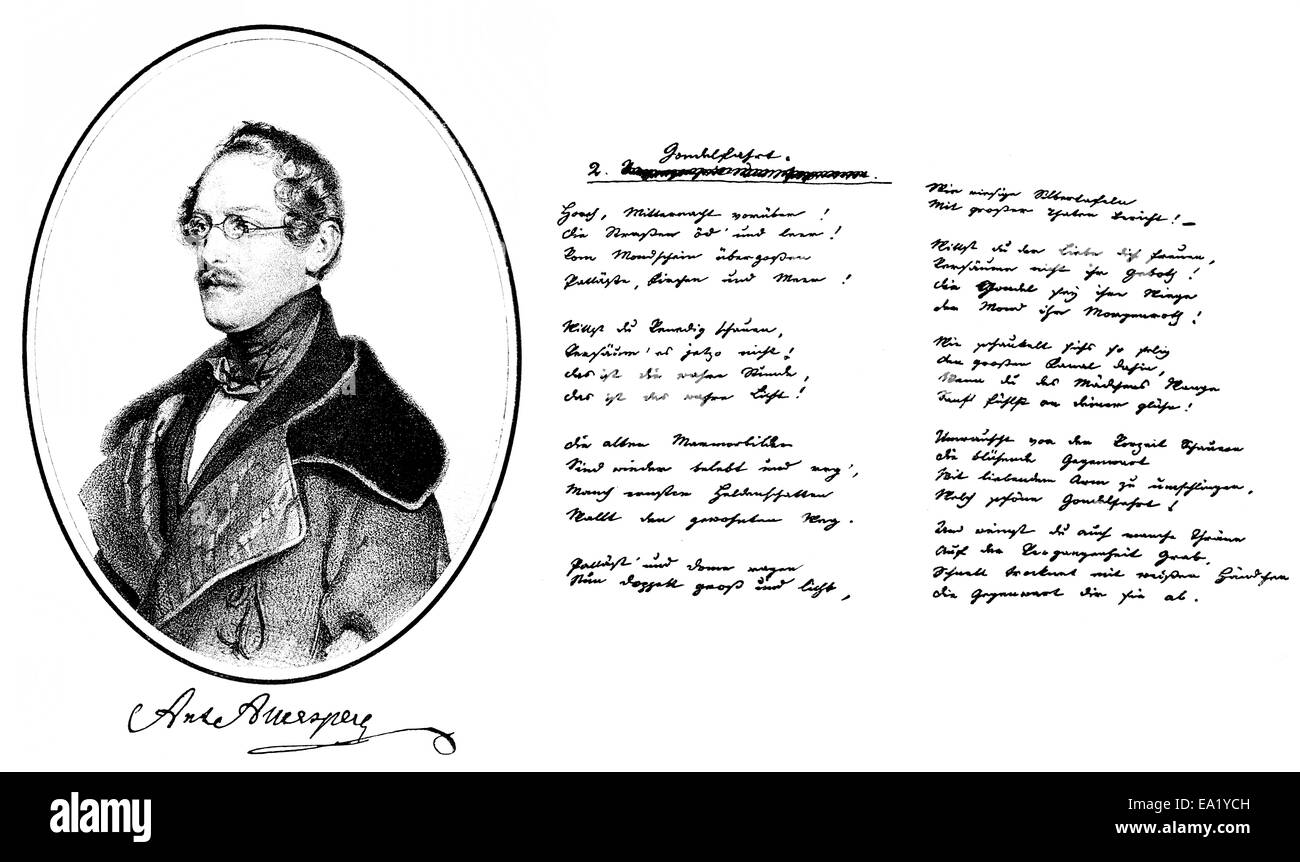 Ant. Auersperg
Gondelfahrt.
2.
Horch, Mitternacht vorüber!
Die Straßen öd' und leer!
Vom Mondschein übergoßen
Palläste, Kirchen und Meer!
Willst du Venedig schauen,
Versäum' es jetzo nicht!
Das ist die wahre Stunde,
Das ist das wahre Licht!
Die alten Marmorbilder
Sind wieder belebt und reg',
Manch ernster Heldenschatten
Wallt den gewohnten Weg.
Palläst' und Dome ragen
Nun doppelt groß und licht,
Wie riesige Silbertafeln
Mit großer Thaten Bericht! –
Willst du der Liebe dich freuen,
Versäume nicht ihr Geboth!
Die Gondel sey ihre Wiege
Der Mond ihr Morgenroth!
Wie schaukelt sichs so selig
Den großen Canal dahin,
Wenn du des Mädchens Wange
Sanft fühlst an deiner glühn!
Umrauscht von der Vorzeit Schauern
Die blühende Gegenwart
Mit liebendem Arm zu umschlingen,
Welch schöne Gondelfahrt!
Und weinst du auch manche Thräne
Auf der Vergangenheit Grab,
Schnell trocknet mit weißen Händchen
Die Gegenwart dir sie ab.
alamy
a
a
a
alamy stock photo
EA1YCH
www.alamy.com